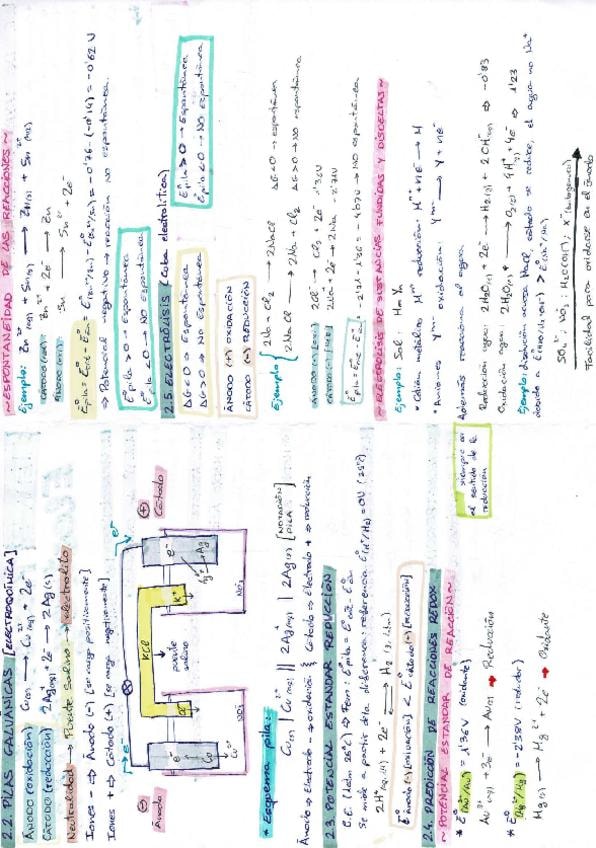 2.2. PILAS GALVÁNICAS [ELECTROQUÍMICA]
ÁNODO (oxidación) Cu(s) → Cu²⁺(aq) + 2e⁻
CÁTODO (reducción) 2Ag⁺(aq) + 2e⁻ → 2Ag(s)
Neutralidad → Puente Salino → electrolito
Iones - → Ánodo (-) [se carga positivamente]
Iones + → Cátodo (+) [se carga negativamente]
e⁻ e⁻
⊖ ⊕
Ánodo Cátodo
KCl
puente salino
Cl⁻ K⁺
e⁻ e⁻
Cu Ag
Cu²⁺ Ag⁺
NO₃⁻ NO₃⁻
* Esquema pila:
Cu(s) | Cu²⁺(aq) || 2Ag⁺(aq) | 2Ag(s) [NOTACIÓN PILA]
Ánodo → Electrodo - → oxidación Cátodo → Electrodo + → reducción
2.3. POTENCIAL ESTANDAR REDUCCIÓN
Se mide a partir de la diferencia referencia E(H⁺/H₂) = 0V (25ºC)
2H⁺(aq) + 2e⁻ → H₂
E˚ánodo (-) [oxidación] < E˚cátodo (+) [reducción]
2.4. PREDICCIÓN DE REACCIONES REDOX
~ POTENCIAL ESTANDAR DE REACCIÓN ~
siempre en el sentido de la reducción
Au³⁺(aq) + 3e⁻ → Au(s) → Reducción
* E˚ = -2'38V
Mg(s) → Mg²⁺ + 2e⁻ → Oxidante
~ ESPONTANEIDAD DE LAS REACCIONES ~
Ejemplo: Zn²⁺(aq) + Sn(s) → Zn(s) + Sn²⁺(aq)
CÁTODO (red) Zn²⁺ + 2e⁻ → Zn
ÁNODO (ox) Sn → Sn²⁺ + 2e⁻
E˚pila = E˚cat - E˚an = E˚(Zn²⁺/Zn) - E˚(Sn²⁺/Sn) = -0'76 - (-0'14) = -0'62 V
⇒ Potencial negativo → reacción NO espontánea.
E˚pila > 0 → Espontánea
E˚pila < 0 → NO Espontánea
2.5. ELECTRÓLISIS (Cuba electrolítica)
ΔG < 0 → Espontánea
ΔG > 0 → NO Espontánea
E˚pila > 0 → Espontánea
E˚pila < 0 → NO Espontánea
ÁNODO (+) OXIDACIÓN
CÁTODO (-) REDUCCIÓN
Ejemplo { 2Na + Cl₂ → 2NaCl ΔG < 0 → espontánea
2NaCl → 2Na + Cl₂ ΔG > 0 → NO espontánea
ÁNODO (+) [oxi] 2Cl⁻ → Cl₂ + 2e⁻ 1'36V
CÁTODO (-) [red] 2Na⁺ + 2e⁻ → 2Na -2'71V
E˚pila = E˚cat - E˚an = -2'71 - 1'36 = -4'07V → NO espontánea
~ ELECTRÓLISIS DE SUSTANCIAS FUNDIDAS Y DISUELTAS ~
Ejemplo: Sal:
• Catión metálico Mⁿ⁺ reducción: Mⁿ⁺ + ne⁻ → M
• Aniones Yᵐ⁻ oxidación: Yᵐ⁻ → Y + me⁻
Además reacciona el agua
Reducción agua: 2H₂O(l) + 2e⁻ → H₂(g) + 2OH⁻ ⇒ -0'83
Oxidación agua: 2H₂O(l) → O₂(g) + 4H⁺ + 4e⁻ ⇒ 1'23
Ejemplo: disolución acuosa NaCl, cátodo se reduce el agua no Na⁺
debido a > E˚(Na⁺/Na)
SO₄²⁻; NO₃⁻; H₂O (OH⁻); X⁻ (halógenos)
Facilidad para oxidarse en el ánodo